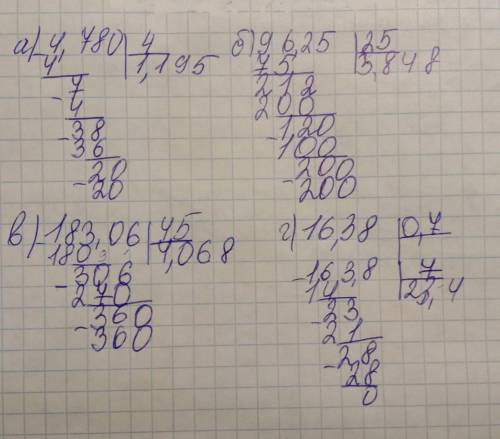 а) -4,780 | 4
4 1,195
-7
4
-38
36
-20
20
б) 96,25 | 25
75 3,848
212
200
-120
100
-200
200
в) -183,06 | 45
180 4,068
-306
270
-360
360
г) 16,38 | 0,7
-163,8 | 7
14 23,4
-23
21
-28
28
0